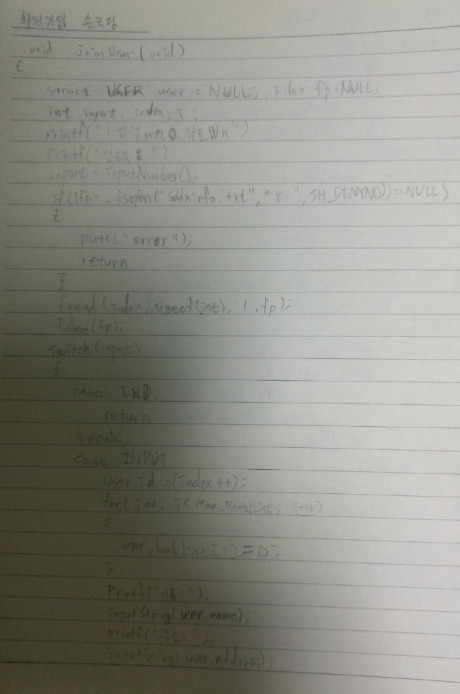 회원가입 손코딩
void joinUser(void)
{
struct USER user = NULL; fp=NULL;
int input, index, i;
printf("1.입력 0.뒤로 \n")
printf("선택 : ")
input = inputNumber();
if((fp=_fsopen("indexinfo.txt", "r", SH_DENYNO))==NULL)
{
puts("error");
return
}
fread(index, sizeof(int), 1, fp);
fclose(fp);
switch(input)
{
case END
return
break;
case INPUT
user.id =(index++);
for( i=0; i< Max_BookList; i++)
{
user.booklist[i] = 0;
}
printf("이름 : ");
inputString( user.name);
printf("주소 : ");
inputString( user.address);